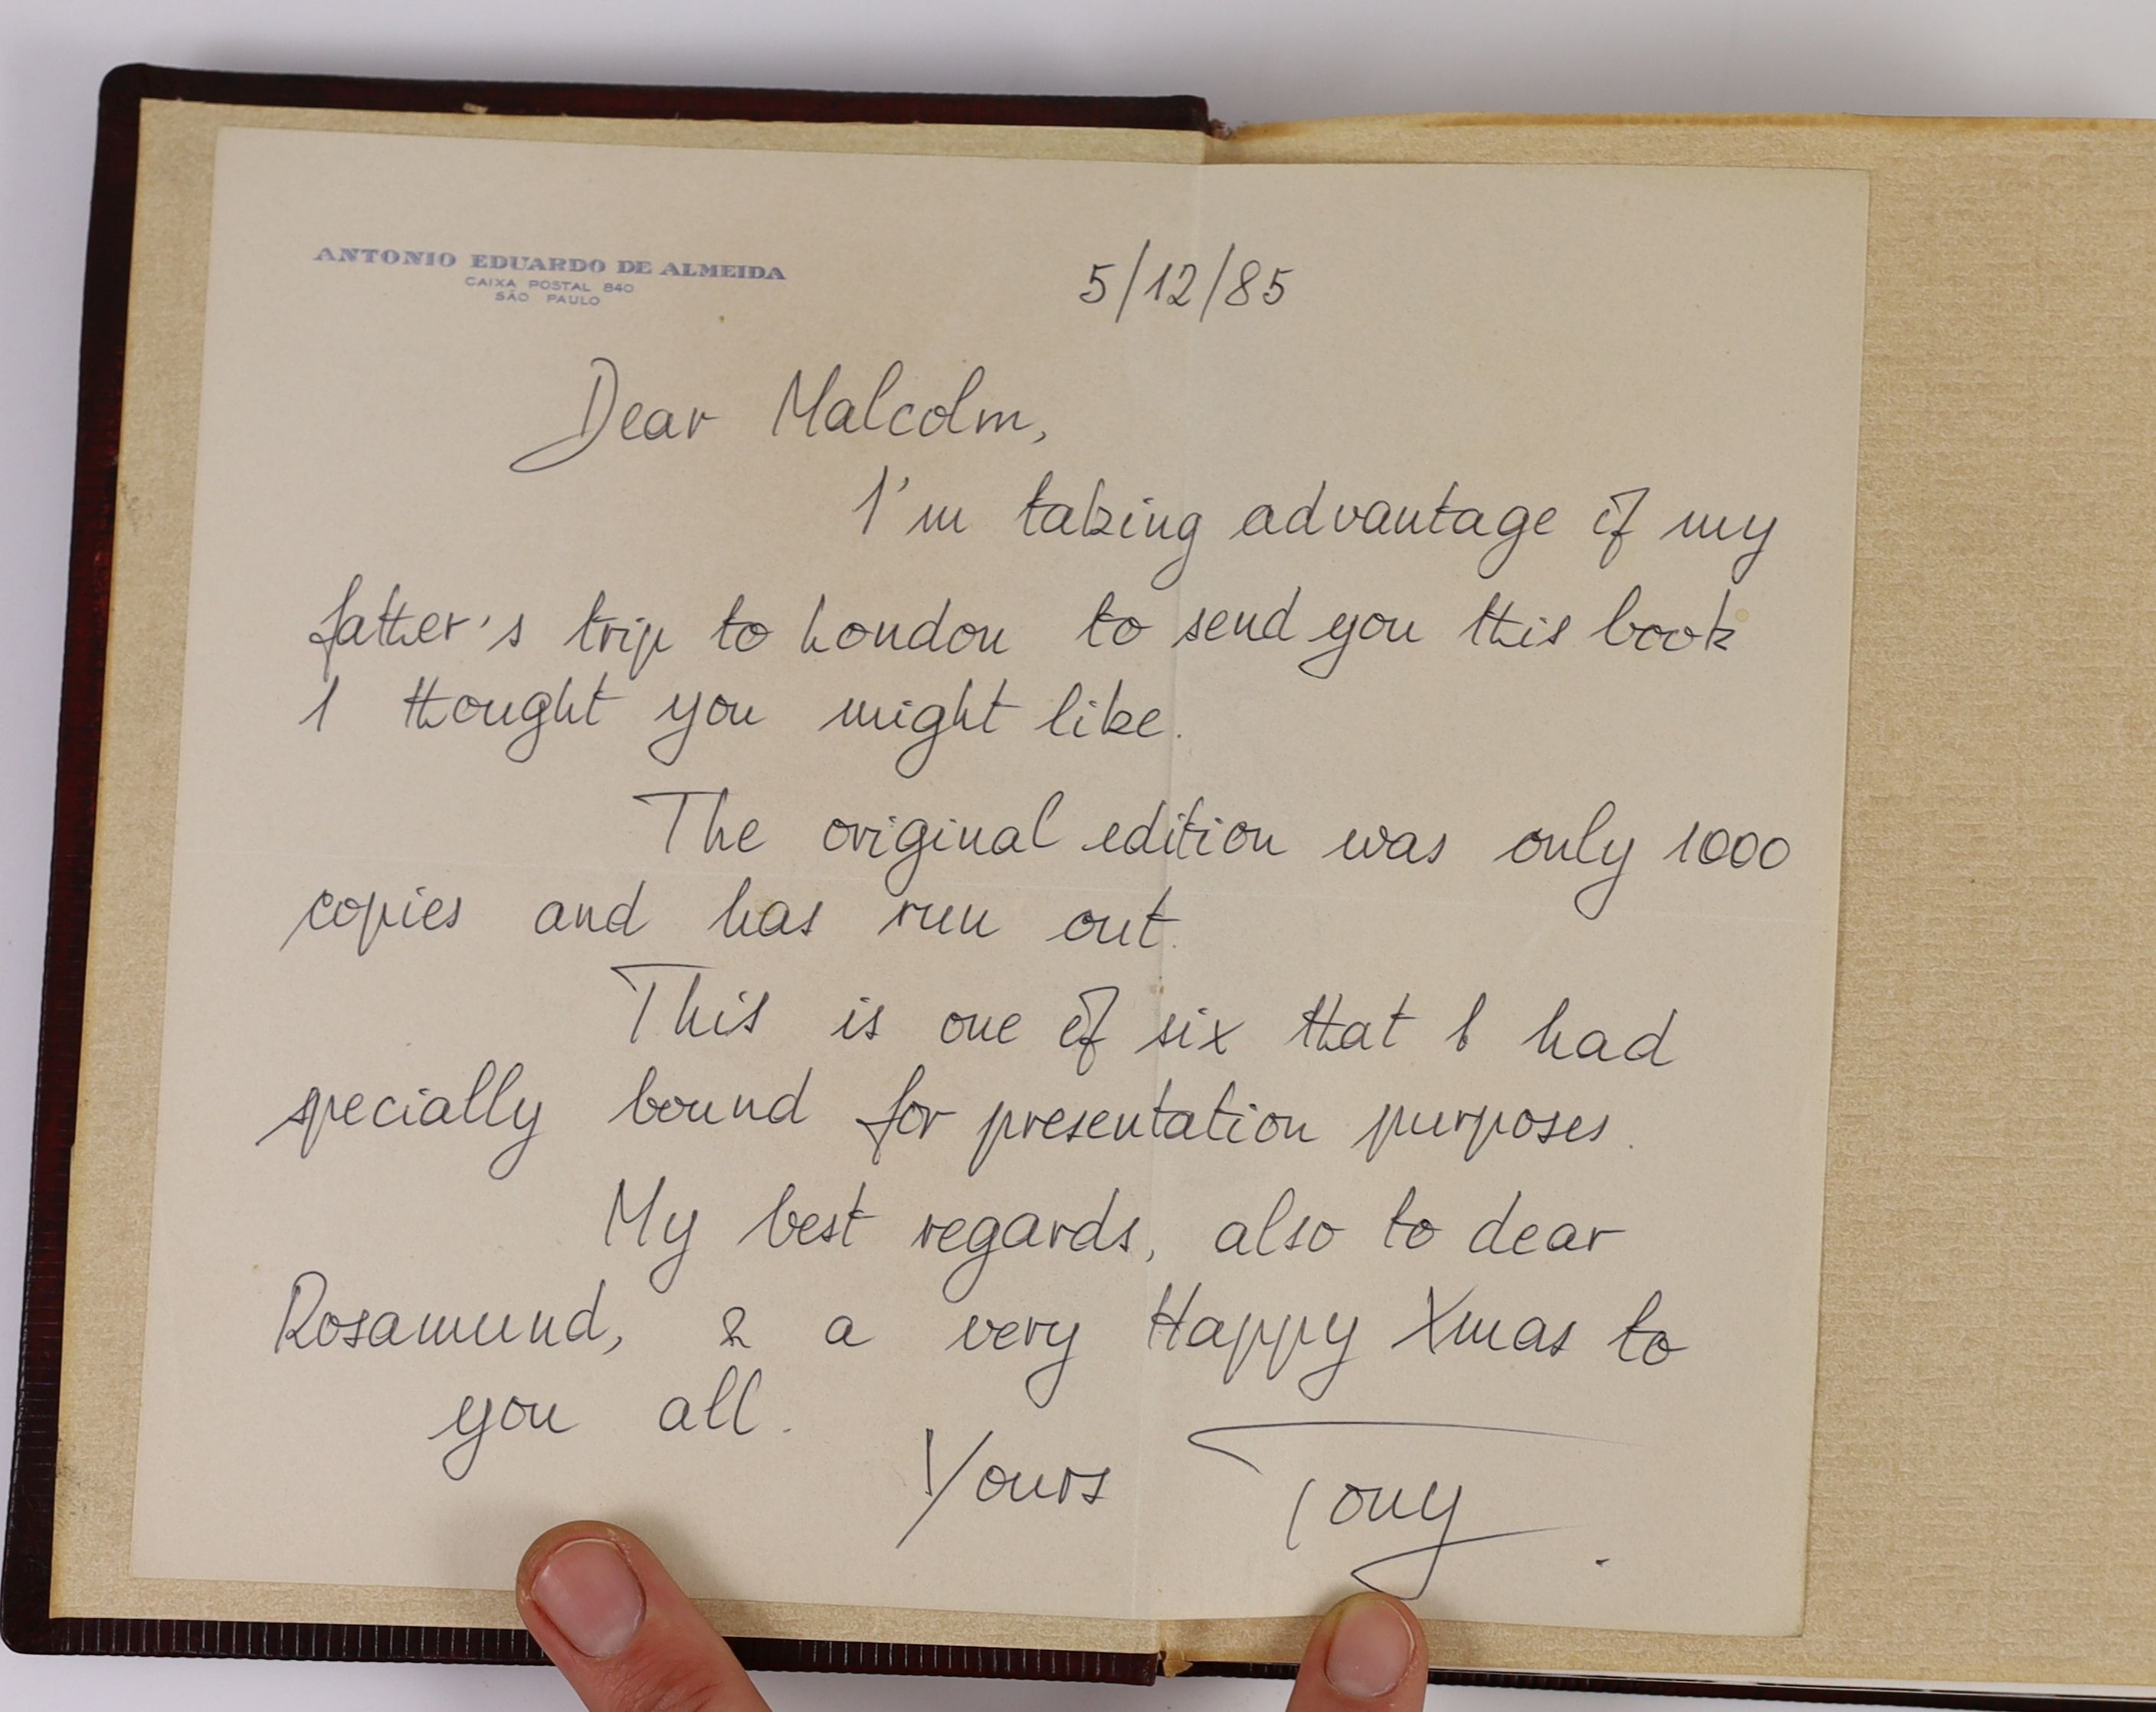 ANTONIO EDUARDO DE ALMEIDA
CAIXA POSTAL 840
SÃO PAULO
5/12/85
Dear Malcolm,
I'm taking advantage of my
father's trip to London to send you this book
I thought you might like.
The original edition was only 1000
copies and has run out.
This is one of six that I had
specially bound for presentation purposes.
My best regards, also to dear
Rosamund, & a very Happy Xmas to
you all.
Yours Tony.